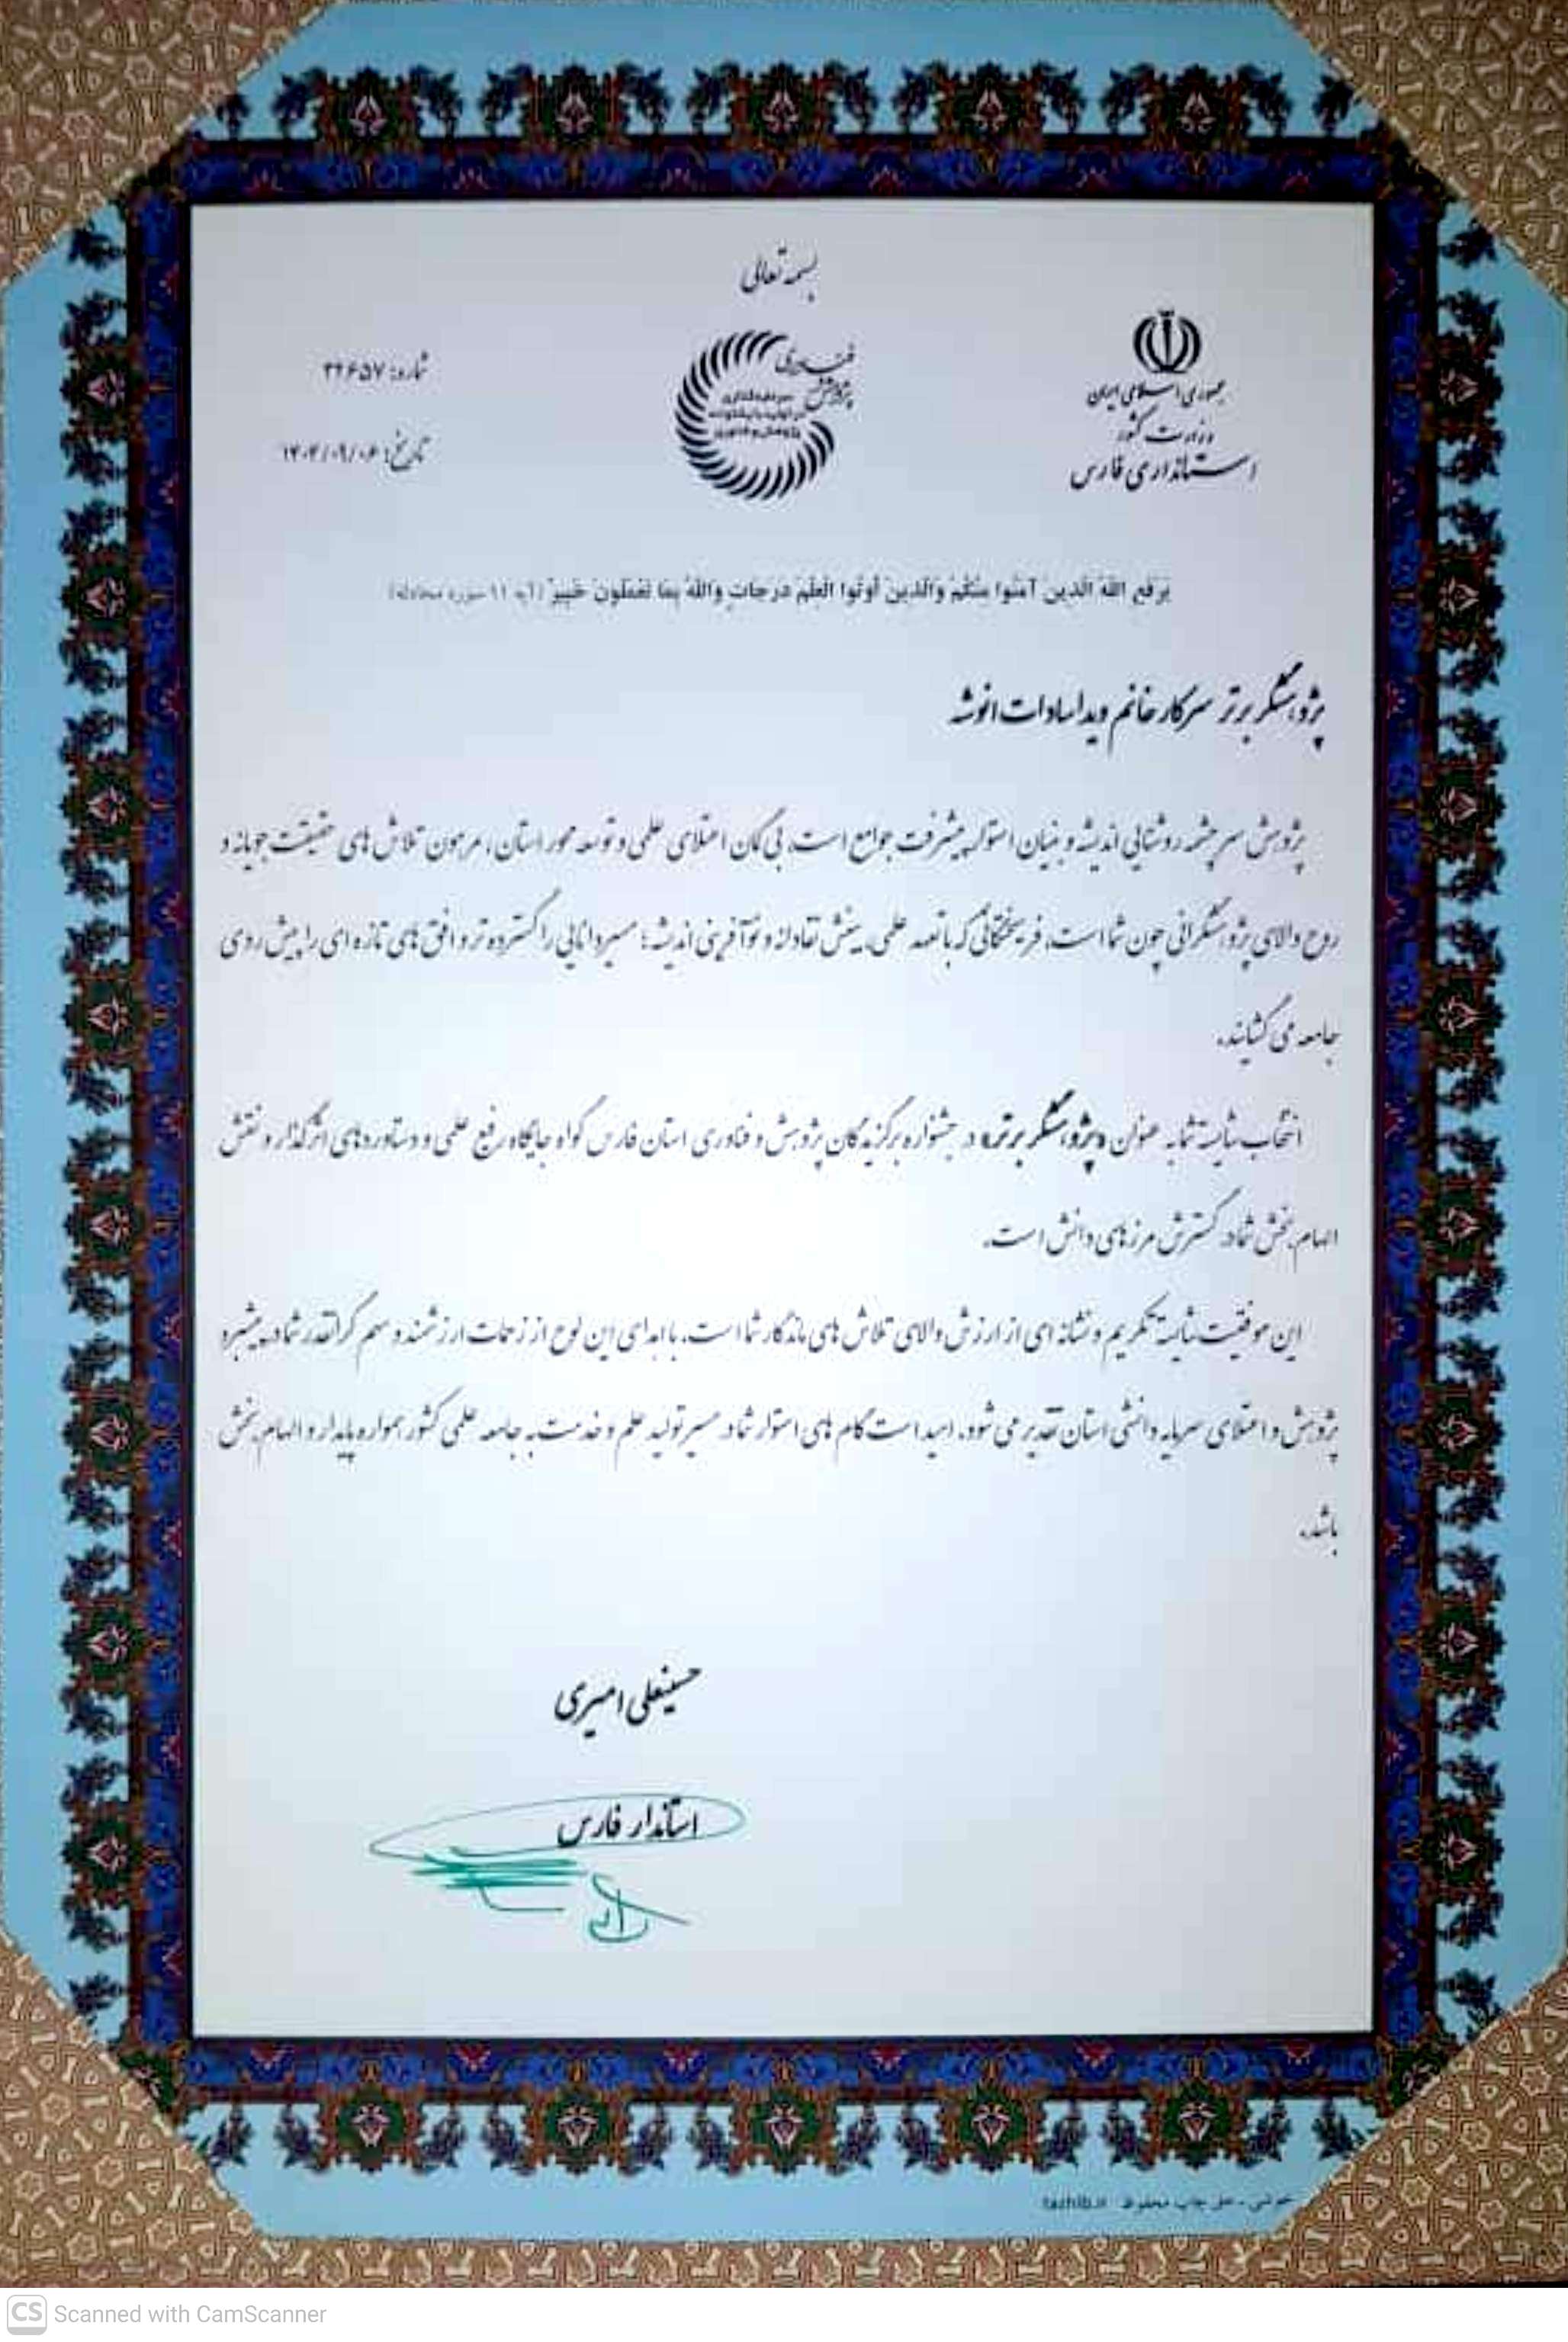 بسمه تعالی
جمهوری اسلامی ایران
وزارت کشور
استانداری فارس
فناوری
پژوهش
شماره: ۳۲۶۵۷
تاریخ: ۱۴۰۴/۰۹/۰۶
يَرفَعِ اللَّهُ الَّذينَ آمَنوا مِنكُم وَالَّذينَ أوتُوا العِلمَ دَرَجاتٍ وَاللَّهُ بِما تَعمَلونَ خَبيرٌ (آیه ۱۱ سوره مجادله)
پژوهشگر برتر سرکار خانم ویدا سادات انوشه
پژوهش سرچشمه روشنایی اندیشه و بنیان استوار پیشرفت جوامع است، بی گمان اعتلای علمی و توسعه محور استان، مرهون تلاش های حقیقت جویانه و
روح والای پژوهشگرانی چون شما است، فریختگانی که با تعهد علمی، بینش نقادانه و نوآفرینی اندیشه؛ مسیر دانایی را گسترده تر و افق های تازه ای را پیش روی
جامعه می گشایند.
انتخاب شایسته شما به عنوان «پژوهشگر برتر» در جشنواره برگزیدگان پژوهش و فناوری استان فارس گواه جایگاه رفیع علمی و دستاوردهای اثرگذار و نقش
الهام بخش شما در گسترش مرزهای دانش است.
این موفقیت شایسته تکریم و نشانه ای از ارزش والای تلاش های ماندگار شما است. با اهدای این لوح از زحمات ارزشمند و سهم گرانقدر شما در پیشبرد
پژوهش و اعتلای سرمایه دانشی استان تقدیر می شود. امید است گام های استوار شما در مسیر تولید علم و خدمت به جامعه علمی کشور همواره پایدار و الهام بخش
باشد.
حسینعلی امیری
استاندار فارس
چاپ محفوظ tazhib.ir
CS Scanned with CamScanner